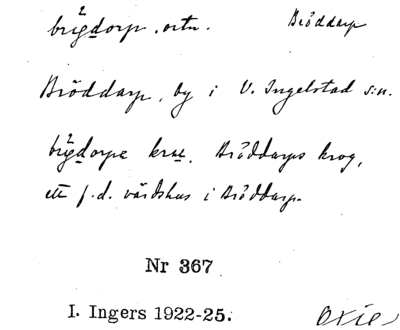 brı̈gdorp. ortn. Bröddarp
Bröddarp, by i V. Ingelstad s:n.
brı̈gdorpa krae. Bröddarps krog,
ett f.d. värdshus i Bröddarp.
Nr 367
I. Ingers 1922-25. Oxie